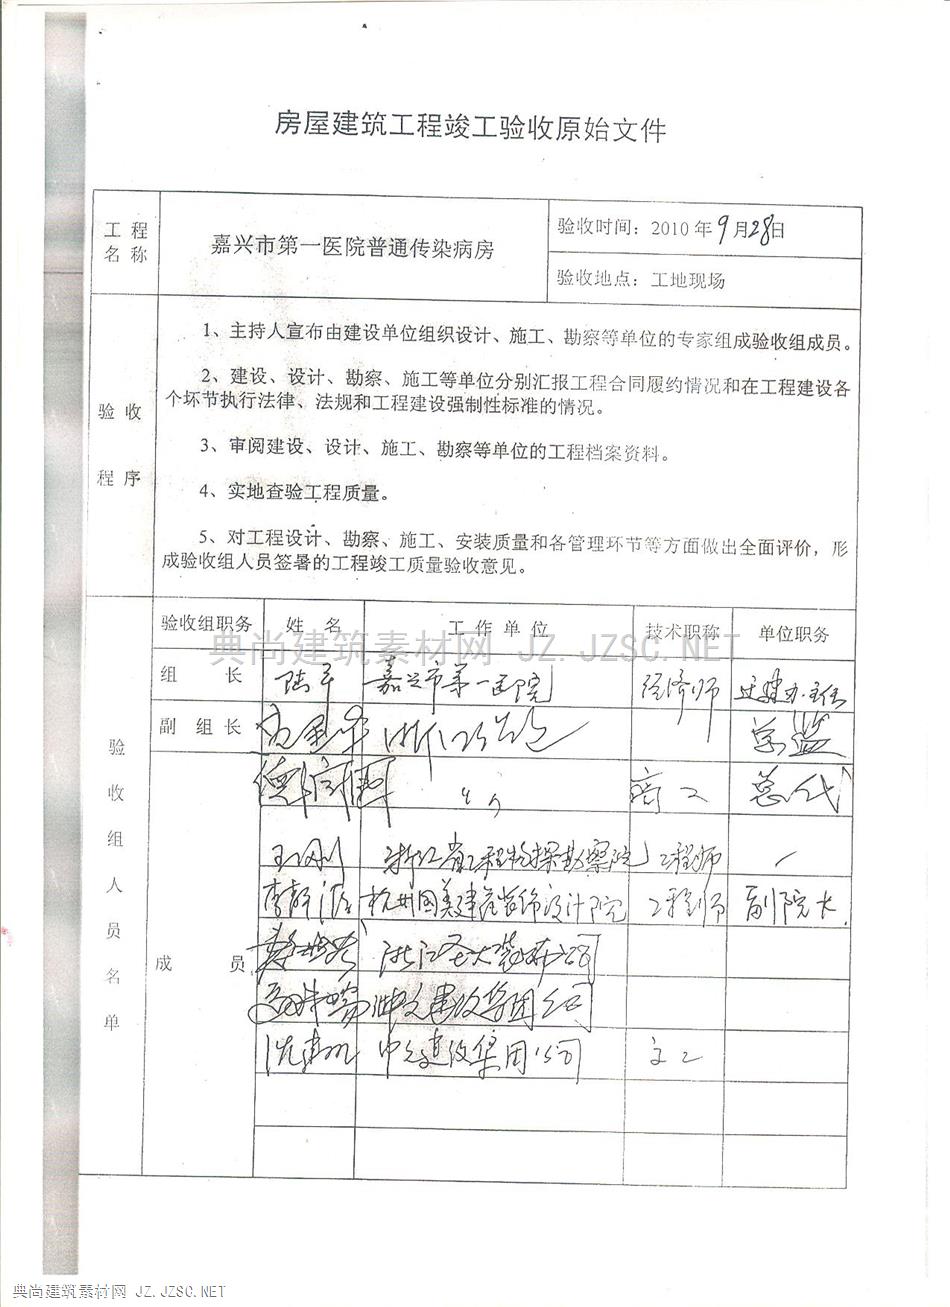 房屋建筑工程竣工验收原始文件
工程名称
嘉兴市第一医院普通传染病房
验收时间：2010年9月28日
验收地点：工地现场
验收程序
1、主持人宣布由建设单位组织设计、施工、勘察等单位的专家组成验收组成员。
2、建设、设计、勘察、施工等单位分别汇报工程合同履约情况和在工程建设各
个坏节执行法律、法规和工程建设强制性标准的情况。
3、审阅建设、设计、施工、勘察等单位的工程档案资料。
4、实地查验工程质量。
5、对工程设计、勘察、施工、安装质量和各管理环节等方面做出全面评价，形
成验收组人员签署的工程竣工质量验收意见。
验收组人员名单
验收组职务 姓名 工作单位 技术职称 单位职务
典尚建筑素材网 JZ.JZSC.NET
组长 陆平 嘉兴市第一医院 经济师 迁建办主任
副组长 总监
高工 总代
成员
王刚 浙江省工程物探勘察院 工程师
杭州国美建筑装饰设计院 工程师 副院长
中元建设集团公司
典尚建筑素材网 JZ.JZSC.NET